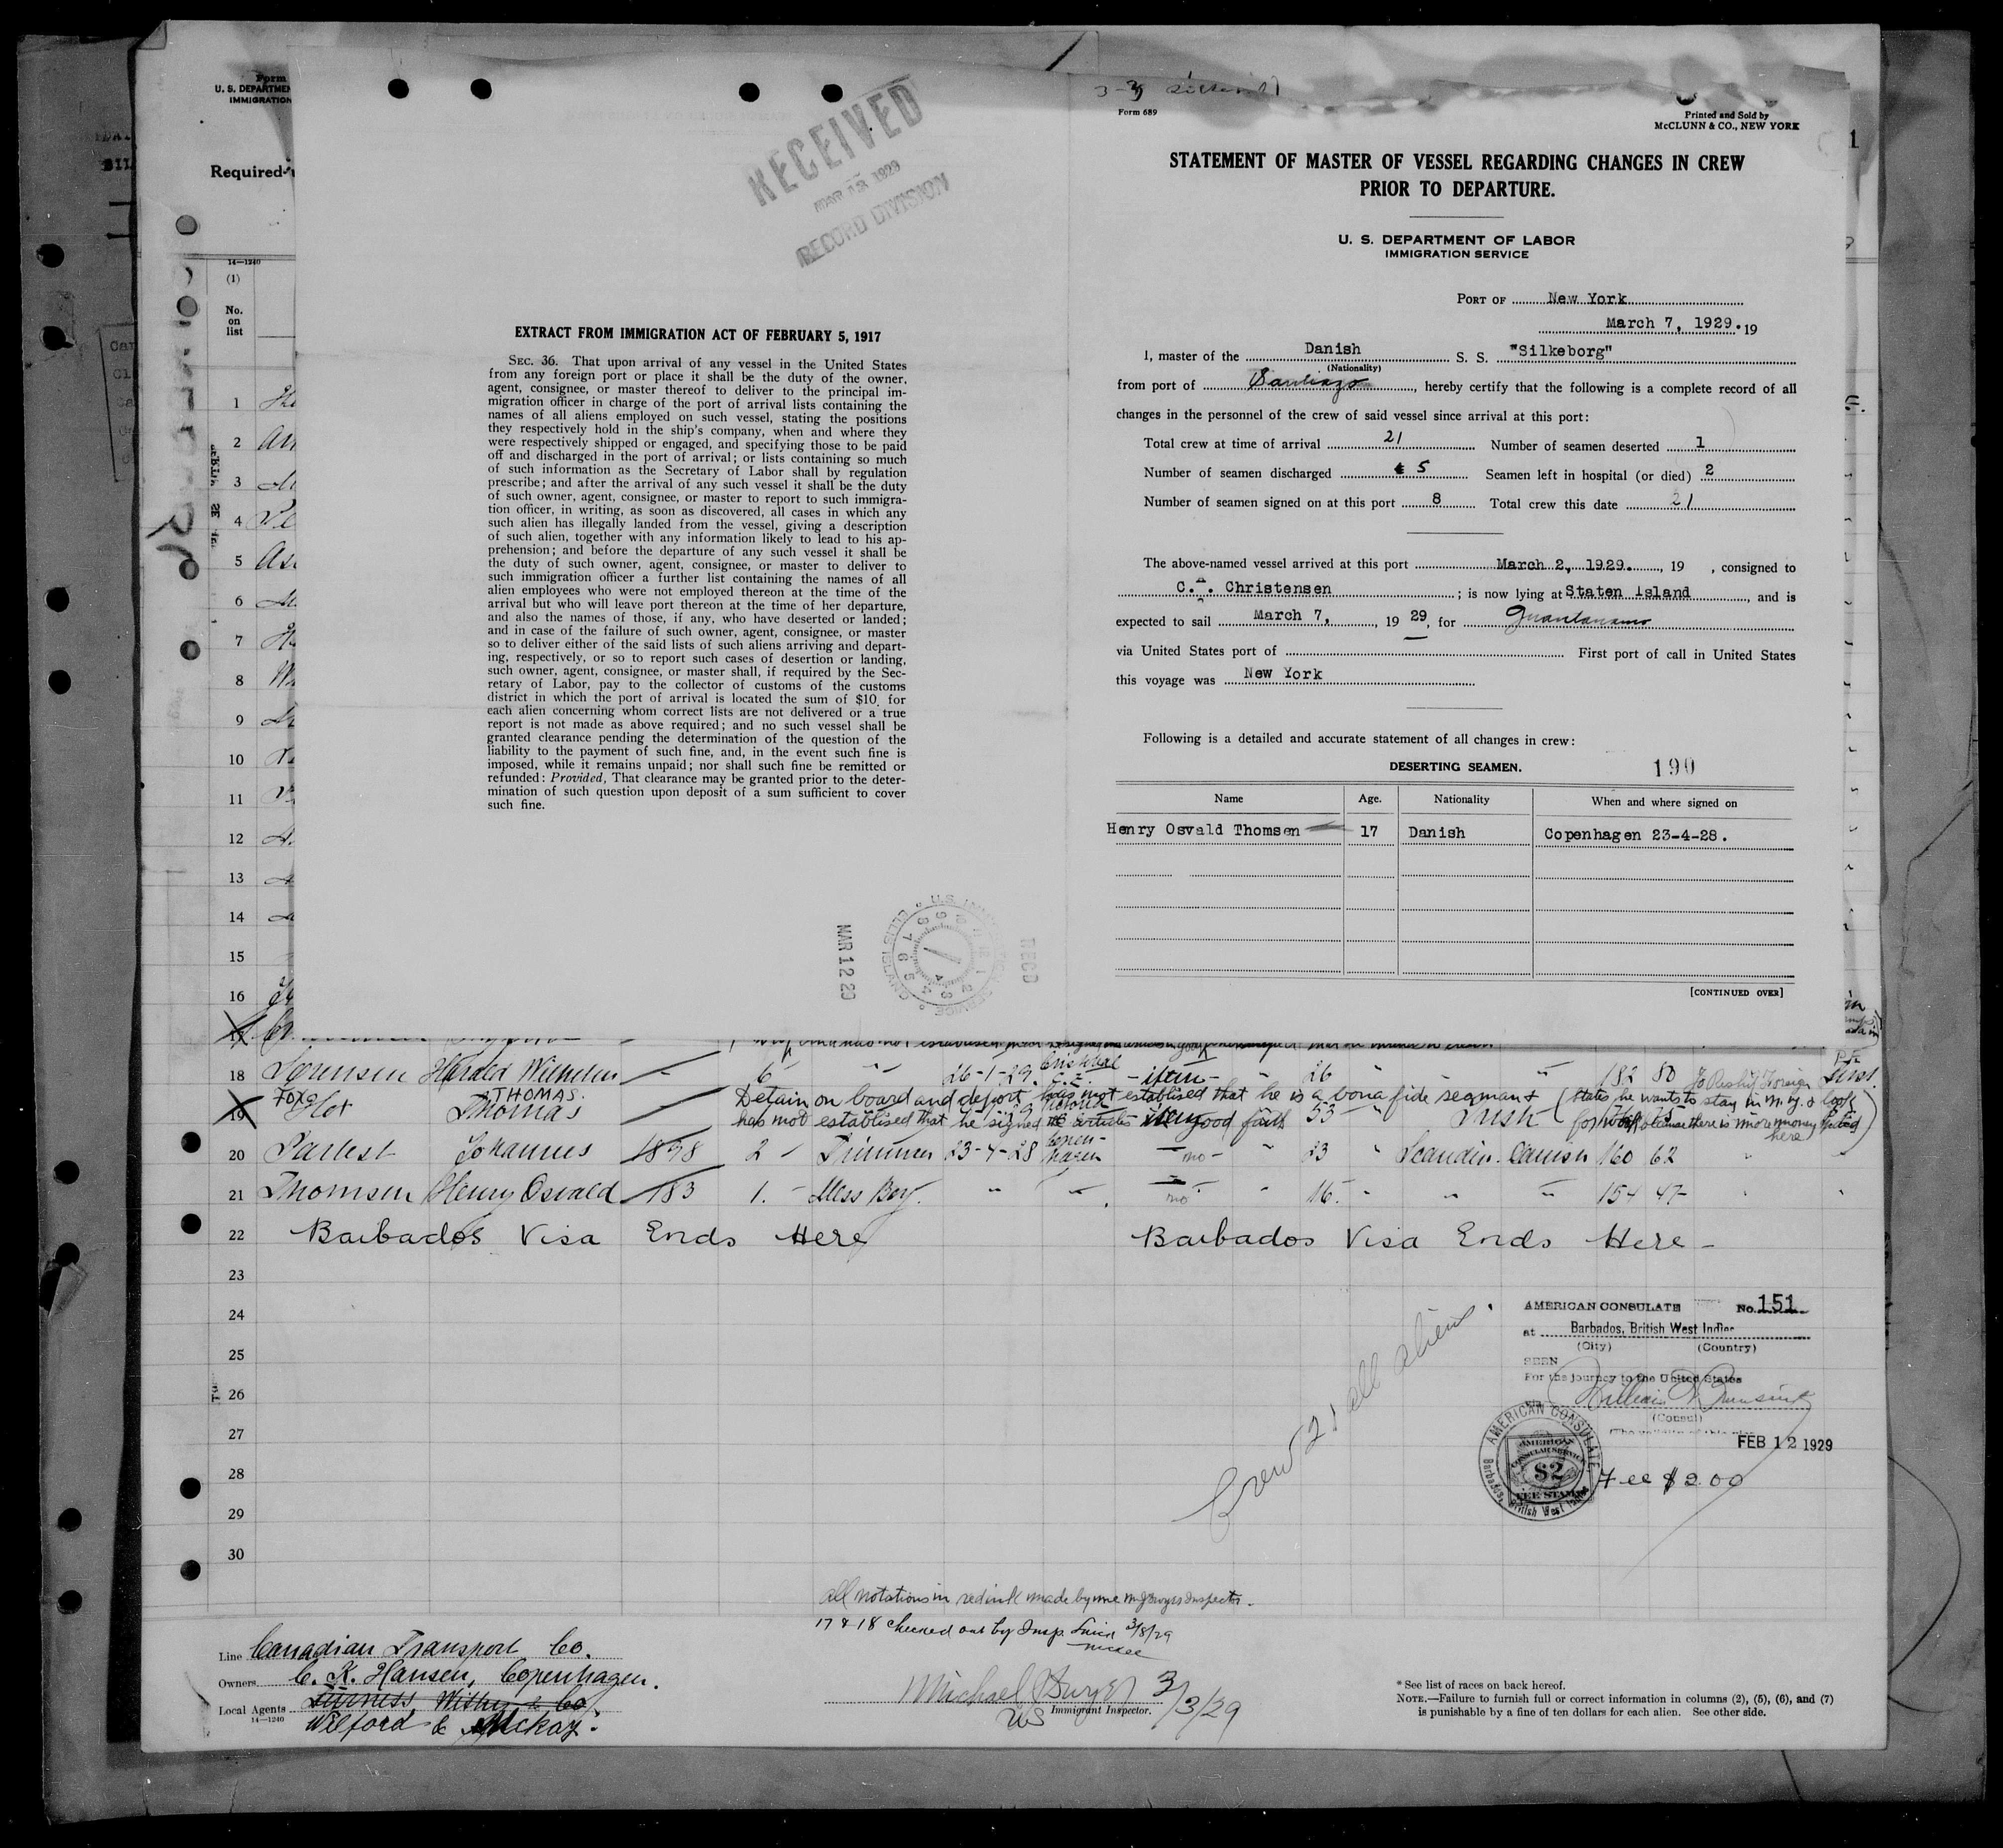 Form
U. S. DEPARTMEN
IMMIGRATION
Required
14—1240
(1)
No.
on
list
1
2
3
4
5
6
7
8
9
10
11
12
13
14
15
16
17
RECEIVED
1929
RECORD DIVISION
EXTRACT FROM IMMIGRATION ACT OF FEBRUARY 5, 1917
SEC. 36. That upon arrival of any vessel in the United States
from any foreign port or place it shall be the duty of the owner,
agent, consignee, or master thereof to deliver to the principal im-
migration officer in charge of the port of arrival lists containing the
names of all aliens employed on such vessel, stating the positions
they respectively hold in the ship's company, when and where they
were respectively shipped or engaged, and specifying those to be paid
off and discharged in the port of arrival; or lists containing so much
of such information as the Secretary of Labor shall by regulation
prescribe; and after the arrival of any such vessel it shall be the duty
of such owner, agent, consignee, or master to report to such immigra-
tion officer, in writing, as soon as discovered, all cases in which any
such alien has illegally landed from the vessel, giving a description
of such alien, together with any information likely to lead to his ap-
prehension; and before the departure of any such vessel it shall be
the duty of such owner, agent, consignee, or master to deliver to
such immigration officer a further list containing the names of all
alien employees who were not employed thereon at the time of the
arrival but who will leave port thereon at the time of her departure,
and also the names of those, if any, who have deserted or landed;
and in case of the failure of such owner, agent, consignee, or master
so to deliver either of the said lists of such aliens arriving and depart-
ing, respectively, or so to report such cases of desertion or landing,
such owner, agent, consignee, or master shall, if required by the Sec-
retary of Labor, pay to the collector of customs of the customs
district in which the port of arrival is located the sum of $10 for
each alien concerning whom correct lists are not delivered or a true
report is not made as above required; and no such vessel shall be
granted clearance pending the determination of the question of the
liability to the payment of such fine, and, in the event such fine is
imposed, while it remains unpaid; nor shall such fine be remitted or
refunded: Provided, That clearance may be granted prior to the deter-
mination of such question upon deposit of a sum sufficient to cover
such fine.
MAR 12 29
RECD
Form 689
Printed and Sold by
McCLUNN & CO., NEW YORK
STATEMENT OF MASTER OF VESSEL REGARDING CHANGES IN CREW
PRIOR TO DEPARTURE.
U. S. DEPARTMENT OF LABOR
IMMIGRATION SERVICE
PORT OF New York
March 7, 1929. 19
I, master of the Danish S. S. "Silkeborg"
(Nationality)
from port of Santiago, hereby certify that the following is a complete record of all
changes in the personnel of the crew of said vessel since arrival at this port:
Total crew at time of arrival 21 Number of seamen deserted 1
Number of seamen discharged 5 Seamen left in hospital (or died) 2
Number of seamen signed on at this port 8 Total crew this date 21
The above-named vessel arrived at this port March 2, 1929., 19 , consigned to
C. . Christensen ; is now lying at Staten Island, and is
expected to sail March 7, , 19 29, for Guantanamo
via United States port of First port of call in United States
this voyage was New York
Following is a detailed and accurate statement of all changes in crew:
DESERTING SEAMEN. 190
Name Age. Nationality When and where signed on
Henry Osvald Thomsen 17 Danish Copenhagen 23-4-28.
[CONTINUED OVER]
18 Sorensen Harald Wilhelm 6 26-1-29. 26 182 80
19 Foxe Hot THOMAS. Thomas Detain on board and deport has not establised that he is a bona fide seaman & (states he wants to stay in N.Y. & look
has not establised that he signed articles in good faith 53 Irish for work because there is more money here)
20 Johannes 1898 2 - Trimmer 23-4-28 Copen-hagen no 23 Scandin. Danish 160 62
21 Thomsen Henry Osvald 183 1. - Mess Boy. no 16. 154 47
22 Barbados Visa Ends Here Barbados Visa Ends Here -
23
24
25
26
27
28
29
30
Crew 21 all aliens.
AMERICAN CONSULATE No. 151
at Barbados, British West Indies
(City) (Country)
SEEN
For the journey to the United States
(Consul)
FEB 12 1929
AMERICAN CONSULATE
Barbados, British West Indies
AMERICAN
CONSULAR SERVICE
$2
FEE STAMP
Fee $2.00
all notations in red ink made by me Inspector.
17 & 18 checked out by Insp. 3/8/29
Line Canadian Transport Co.
Owners C. K. Hansen, Copenhagen.
Local Agents Furness Withy & Co
14—1240
Wilford & McKay.
Michael Dwyer 3/3/29
US Immigrant Inspector.
* See list of races on back hereof.
NOTE.—Failure to furnish full or correct information in columns (2), (5), (6), and (7)
is punishable by a fine of ten dollars for each alien. See other side.